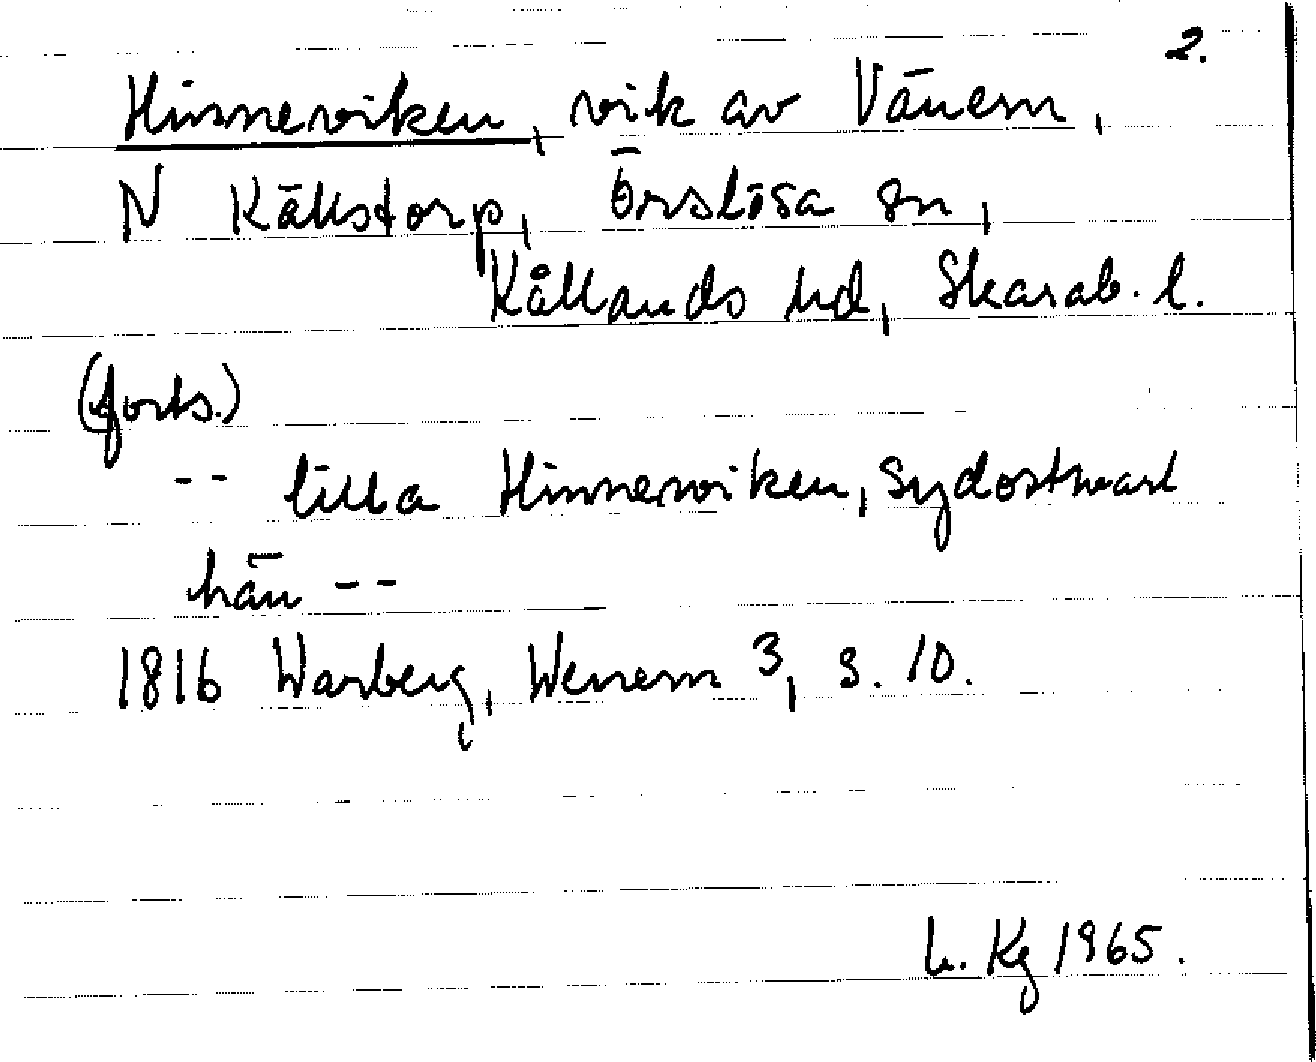 2.
Hinneviken, vik av Vänern,
N Källstorp, Örslösa sn,
Kållands hd, Skarab. l.
(forts.)
-- lilla Hinneviken, sydosthvart
hän --
1816 Warberg, Wenern 3, s. 10.
L. Kg 1965.